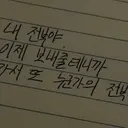 내 전부야.
이제 보내줄테니까
가서 또 누군가의 전부